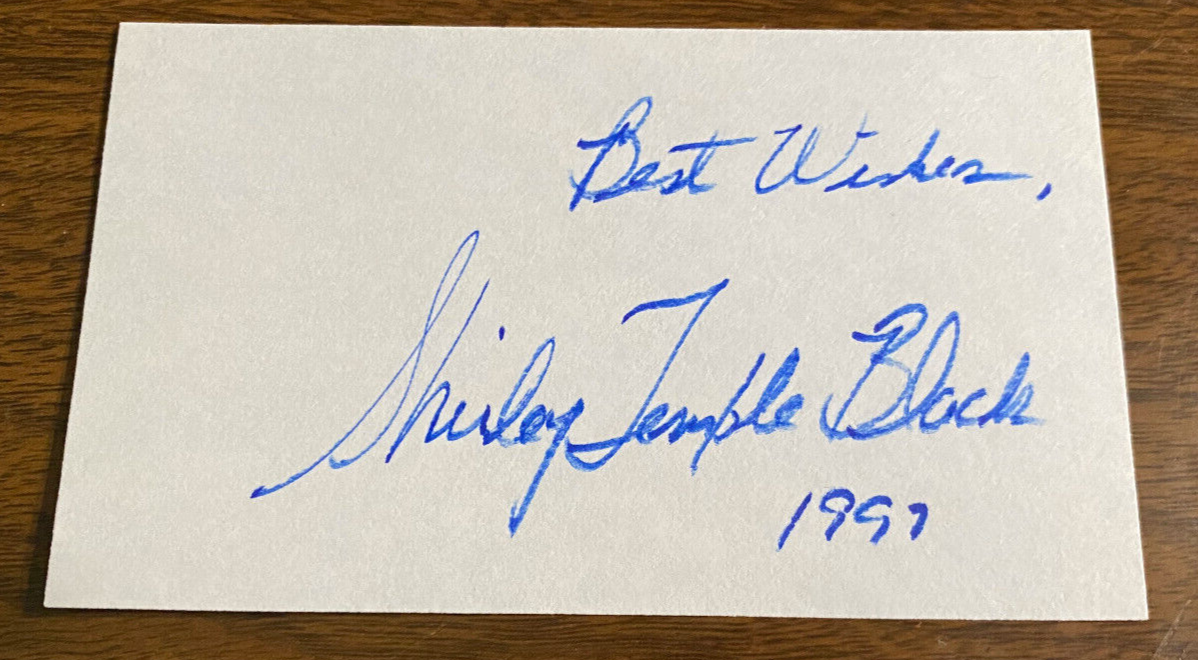 Best Wishes,
Shirley Temple Black
1997